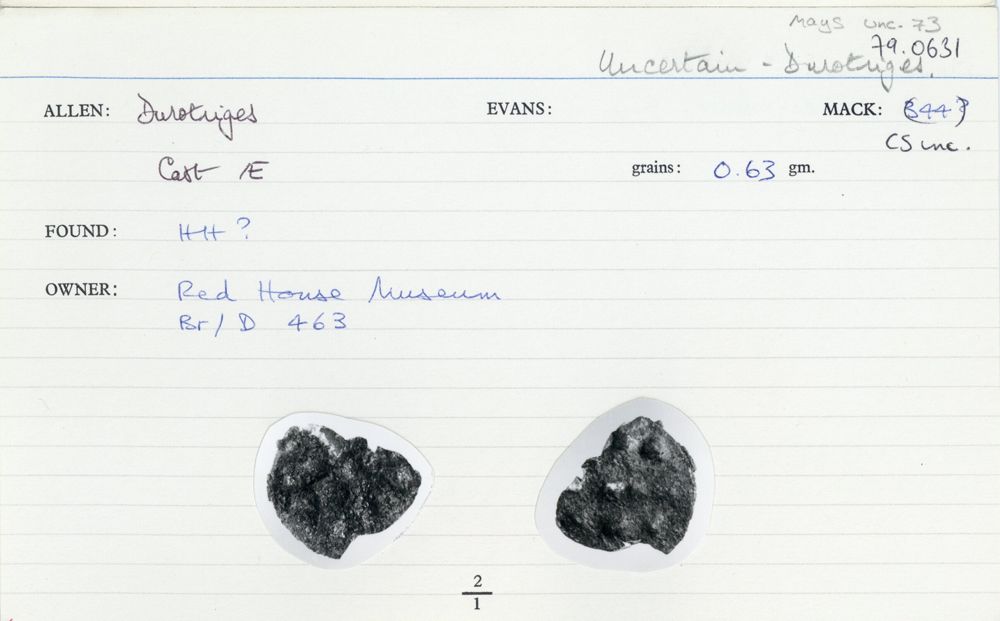 Mays unc. 73
79.0631
Uncertain - Durotriges.
ALLEN: Durotriges EVANS: MACK: (344?)
CS unc.
Cast Æ grains: 0.63 gm.
FOUND: HH ?
OWNER: Red House Museum
Br/D 463
2
1